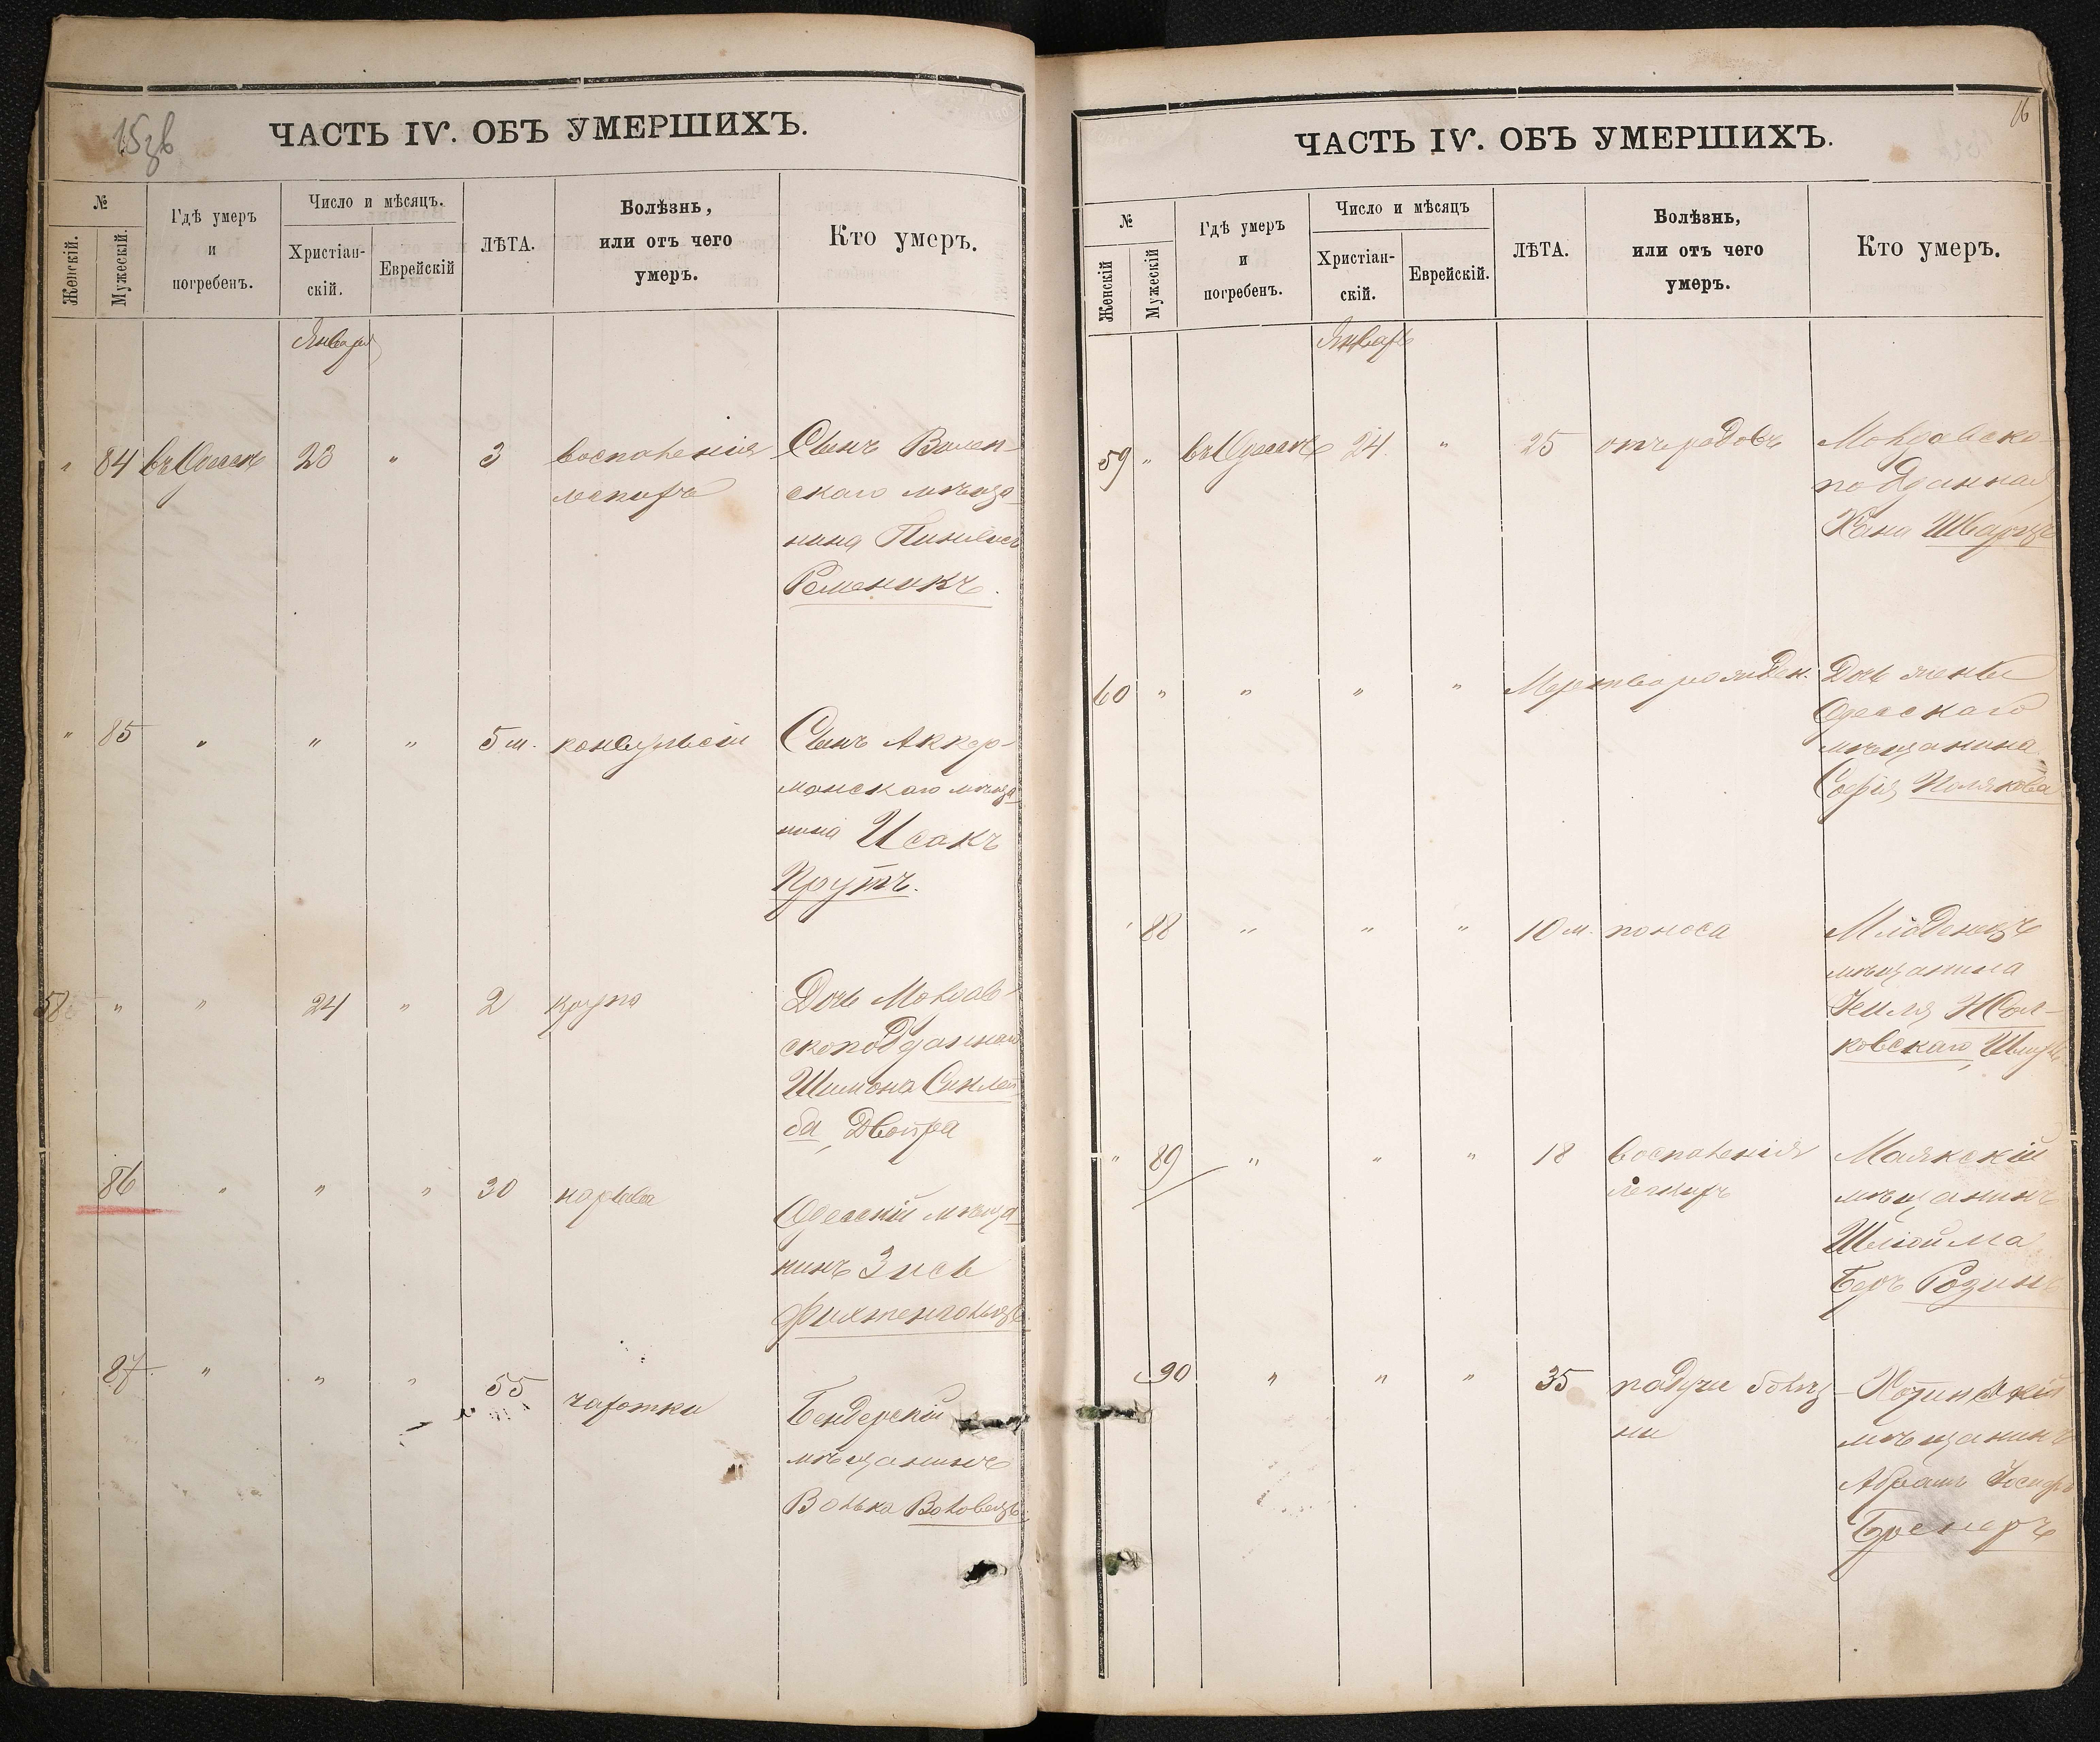 15зв
ЧАСТЬ IV. ОБЪ УМЕРШИХЪ.
№
Женскій.
Мужескій.
Гдѣ умеръ
и
погребенъ.
Число и мѣсяцъ.
Христіан-
скій.
Еврейскій
ЛѢТА.
Болѣзнь,
или отъ чего
умеръ.
Кто умеръ.
Января
" 84 въ Одессѣ 23 " 3 воспаленія Сынъ Вилен-
легкихъ скаго мѣща
нина Пинхасъ
Ременикъ.
" 85 " " " 5 м. конвульсіи Сынъ Аккер-
манскаго мѣща
нина Исакъ
Прутъ.
58 " " 24 " 2 крупа Дочь Молдав-
скоподданнаго
Шимона Сикле
ба, Двойра
86 " " " 30 нарыва Одесскій мѣща
нинъ Зись
Фихтенгольцъ
87 " " " 55 чахотки Бендерскій
мѣщанинъ
Волька Воловецъ
16
ЧАСТЬ IV. ОБЪ УМЕРШИХЪ.
№
Женскій
Мужескій
Гдѣ умеръ
и
погребенъ.
Число и мѣсяцъ
Христіан-
скій.
Еврейскій.
ЛѢТА.
Болѣзнь,
или отъ чего
умеръ.
Кто умеръ.
Январь
59 " въ Одессѣ 24 " 25 отъ родовъ Молдавско-
подданная
Хана Шварцъ
60 " " " " Мертворожден. Дочь жены
Одесскаго
мѣщанина
Софія Полякова
" 88 " " " 10 м. поноса Младенецъ
мѣщанина
Хеиля Жол-
ковскаго,
" 89 " " " 18 воспаленія Маякскій
легкихъ мѣщанинъ
Шлойма
Беръ Розинъ
90 " " " 35 падучи болѣз- Хотинскій
ни мѣщанинъ
Абрамъ
Бренеръ